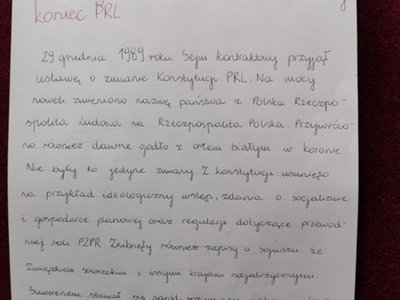 koniec PRL
29 grudnia 1989 roku Sejm kontraktowy przyjął
ustawę o zmianie Konstytucji PRL. Na mocy
noweli zmieniono nazwę państwa z Polska Rzeczpo-
spolita Ludowa na Rzeczpospolita Polska. Przywróco-
no również dawne godło z orłem białym w koronie.
Nie były to jedyne zmiany. Z konstytucji usunięto
na przykład ideologiczny wstęp, zdania o socjalizmie
i gospodarce planowej oraz regulacje dotyczące przewod-
niej roli PZPR Zniknęły również zapisy o sojuszu ze
Związkiem Sowieckim i innymi krajami socjalistycznymi.
Suwerenem stawał się naród